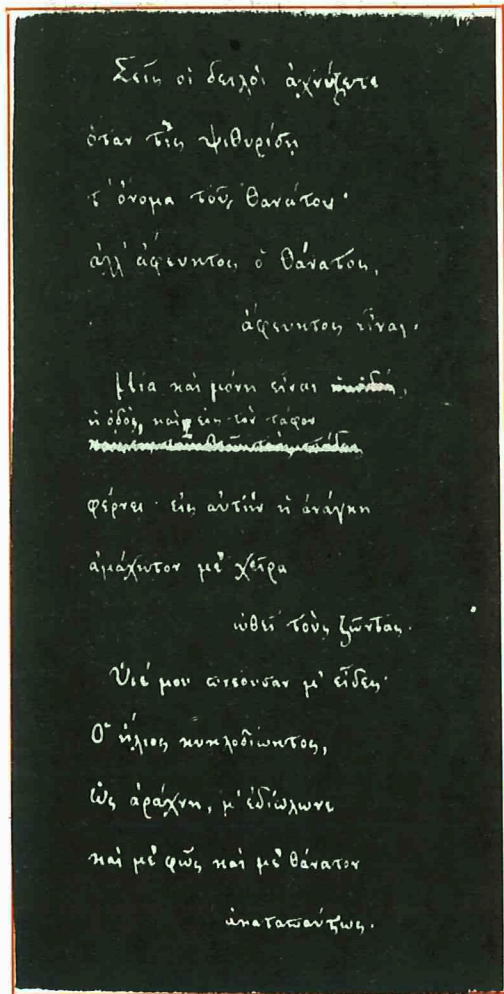 Σεῖς οἱ δειλοὶ ἀχνύζετε
ὅταν τὶς ψιθυρίσῃ
τ' ὄνομα τοῦ θανάτου·
ἀλλ' ἄφευκτος ὁ θάνατος,
ἄφευκτος εἶναι.
Μία καὶ μόνη εἶναι
ἡ ὁδὸς, καὶ εἰς τὸν τάφον
φέρνει· εἰς αὐτὴν ἡ ἀνάγκη
ἀμάχητον μὲ χεῖρα
ὠθεῖ τοὺς ζῶντας.
Ὑιέ μου πνέουσαν μ' εἶδες·
Ὁ ἥλιος κυκλοδίωκτος,
ὡς ἀράχνη, μ' ἐδίπλωνε
καὶ μὲ φῶς καὶ μὲ θάνατον
ἀκαταπαύστως.